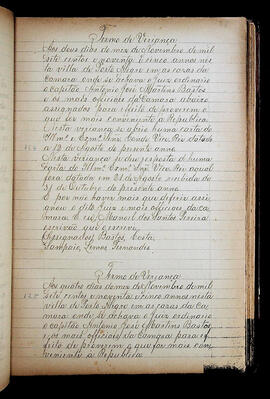 Termo de Veriança
Aos dous dias do mez de Novembro de mil
sete centos e noventa e cinco annos nes
ta villa de Porto Alegre em as cazas da
Camara onde se achava o Juiz ordinario
o capitão Antonio José Martins Bastos
e os mais officiaes da Camara abaixo
assignados para effeito de proverem o
que for mais conveniente a Republica
Nesta veriança se abrio huma carta do
Illmo. e Exmo. Snr. Conde Vice Rey datada
a 12 de Agosto do presente anno
Nesta veriança se deo resposta d huma
Carta do Illmo. Exmo. Snr. Vice Rey a qual
fora datada em 21 de Agosto recebida de
31 de Outubro do presente anno
E por não haver mais que deferir assi
gnou o dito Juiz e mais officiaes da Ca
mara. E eu, Manoel dos Santos Pereira
escrivão que o escrevi
(Assignados) Bastos, Costa,
Sampaio, Lemos, Fernandes
Termo de Veriança
Aos quatro dias do mez de Novembro de mil
sete centos e noventa e cinco annos nesta
villa de Porto Alegre em as cazas da Ca
mara onde se achava o Juiz ordinario
o capitão Antonio José Martins Bastos
e os mais officiaes da Camara para ef
feito de proverem o que for mais con
veniente á Republica